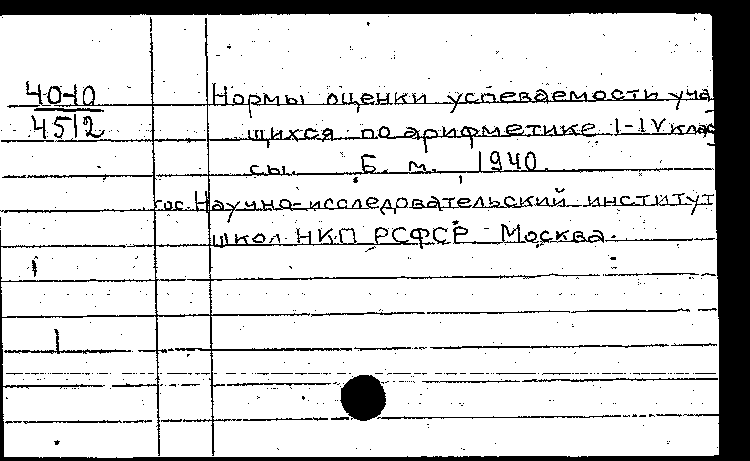 40-10
4512
Нормы оценки успеваемости уча
щихся по арифметике I-IV клас
сы. Б. м. 1940.
гос. Научно-исследовательский институт
школ НКП РСФСР Москва.